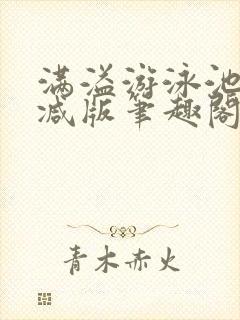 满溢游泳池
减版笔趣阁
青木赤火